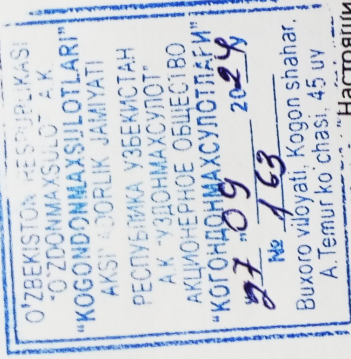 O'ZBEKISTON RESPUBLIKASI
"O'ZDONMAXSULOT" A.K
"KOGONDONMAXSULOTLARI"
AKSIYADORLIK JAMIYATI
РЕСПУБЛИКА УЗБЕКИСТАН
АК "УЗДОНМАХСУЛОТ"
АКЦИОНЕРНОЕ ОБЩЕСТВО
"КОГОНДОНМАХСУЛОТЛАРИ"
27 09 2024 y
№ 163
Buxoro viloyati, Kogon shahar,
A.Temur ko'chasi, 45 uy
Настоящи